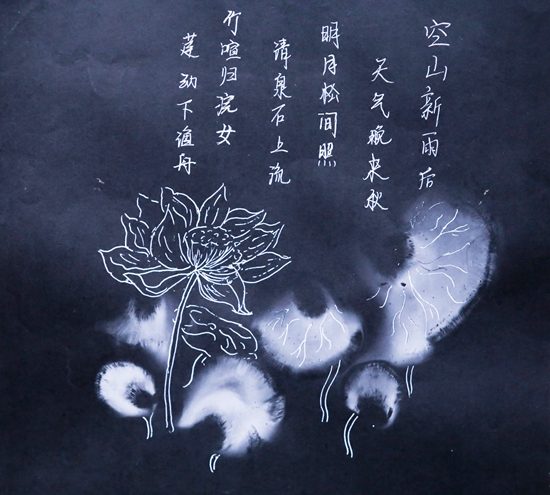 空山新雨后
天气晚来秋
明月松间照
清泉石上流
竹喧归浣女
莲动下渔舟